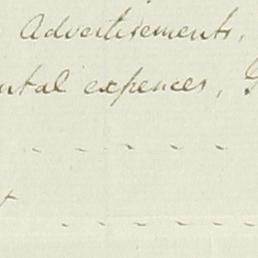 Advertisements,
ntal expences,